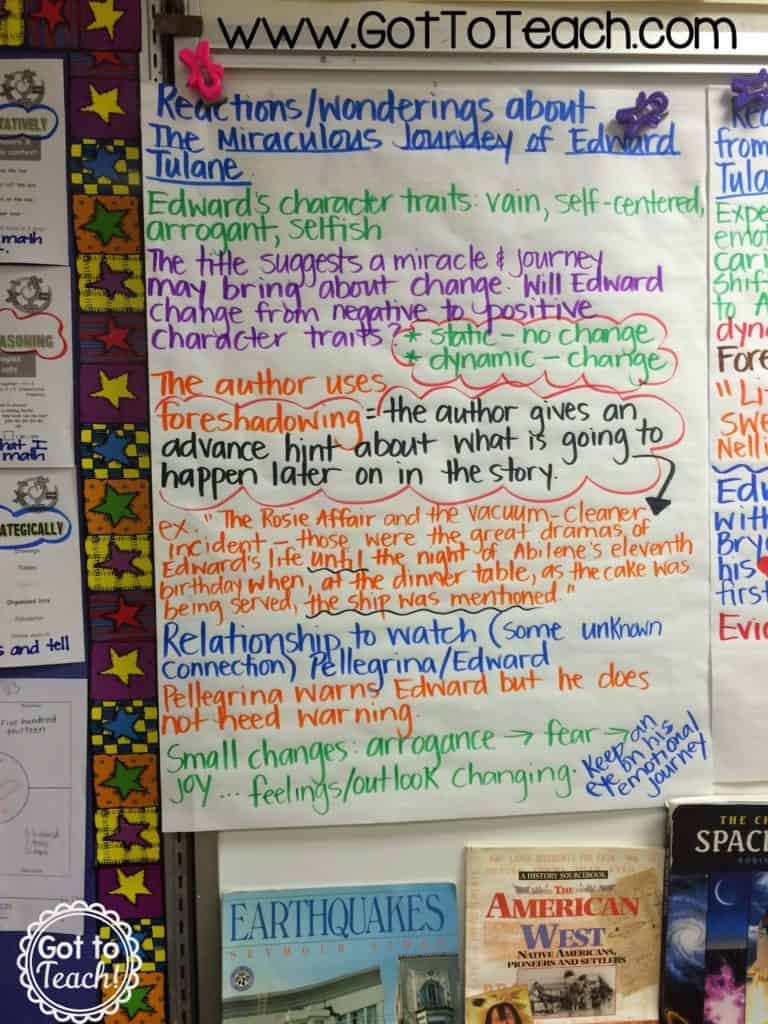 www.GotToTeach.com
Reactions/Wonderings about
The Miraculous Journey of Edward
Tulane
Edward's character traits: vain, self-centered,
arrogant, selfish
The title suggests a miracle & journey
may bring about change. Will Edward
change from negative to positive
character traits?
* static - no change
* dynamic - change
The author uses
foreshadowing = the author gives an
advance hint about what is going to
happen later on in the story.
ex. "The Rosie Affair and the vacuum-cleaner
incident - those were the great dramas of
Edward's life until the night of Abilene's eleventh
birthday when, at the dinner table, as the cake was
being served, the ship was mentioned."
Relationship to watch (some unknown
connection) Pellegrina/Edward
Pellegrina warns Edward but he does
not heed warning.
Small changes: arrogance → fear →
joy... feelings/outlook changing.
Keep an
eye on his
emotional
journey
from
Tula
Expe
emot
cari
Shif
to A
dyn
Fore
"Li
Swe
Nelli
Edw
with
Bry
his
first
Evid
math
math
s and tell
Five hundred
thirteen
EARTHQUAKES
SEYMOUR SIMON
A HISTORY SOURCEBOOK
The
AMERICAN
WEST
NATIVE AMERICANS,
PIONEERS AND SETTLERS
THE
SPAC
Got to
Teach!